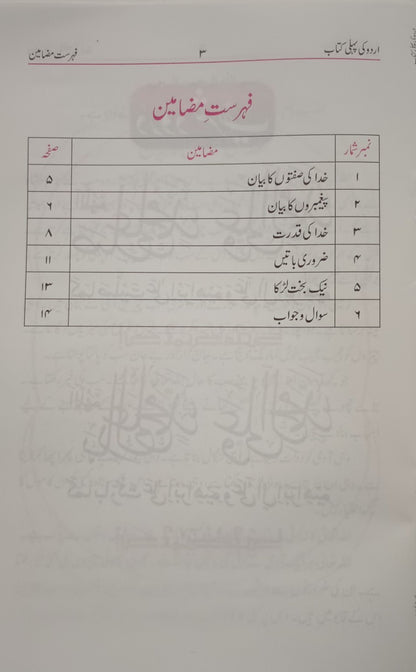 اردو کی پہلی کتاب ۳ فہرست مضامین
فہرستِ مضامین
نمبر شمار مضامین صفحہ
۱ خدا کی صفتوں کا بیان ۵
۲ پیغمبروں کا بیان ۶
۳ خدا کی قدرت ۸
۴ ضروری باتیں ۱۱
۵ نیک بخت لڑکا ۱۳
۶ سوال و جواب ۱۴